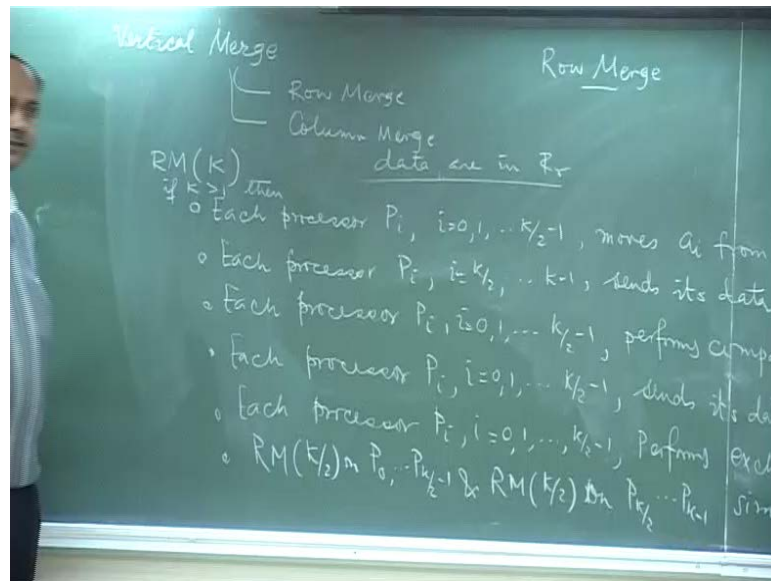 Vertical Merge
Row Merge
Row Merge
Column Merge
RM(K)
data are in Rr
if K > 1 then
o Each processor Pi, i=0,1,..K/2-1, moves ai from
o Each processor Pi, i=K/2,..K-1, sends its data
o Each processor Pi, i=0,1,...K/2-1, performs comp
• Each processor Pi, i=0,1,...K/2-1, sends it's da
o Each processor Pi, i=0,1,...,K/2-1, Performs exc
• RM(K/2) on P0,..PK/2-1 & RM(K/2) on PK/2...PK-1 sim